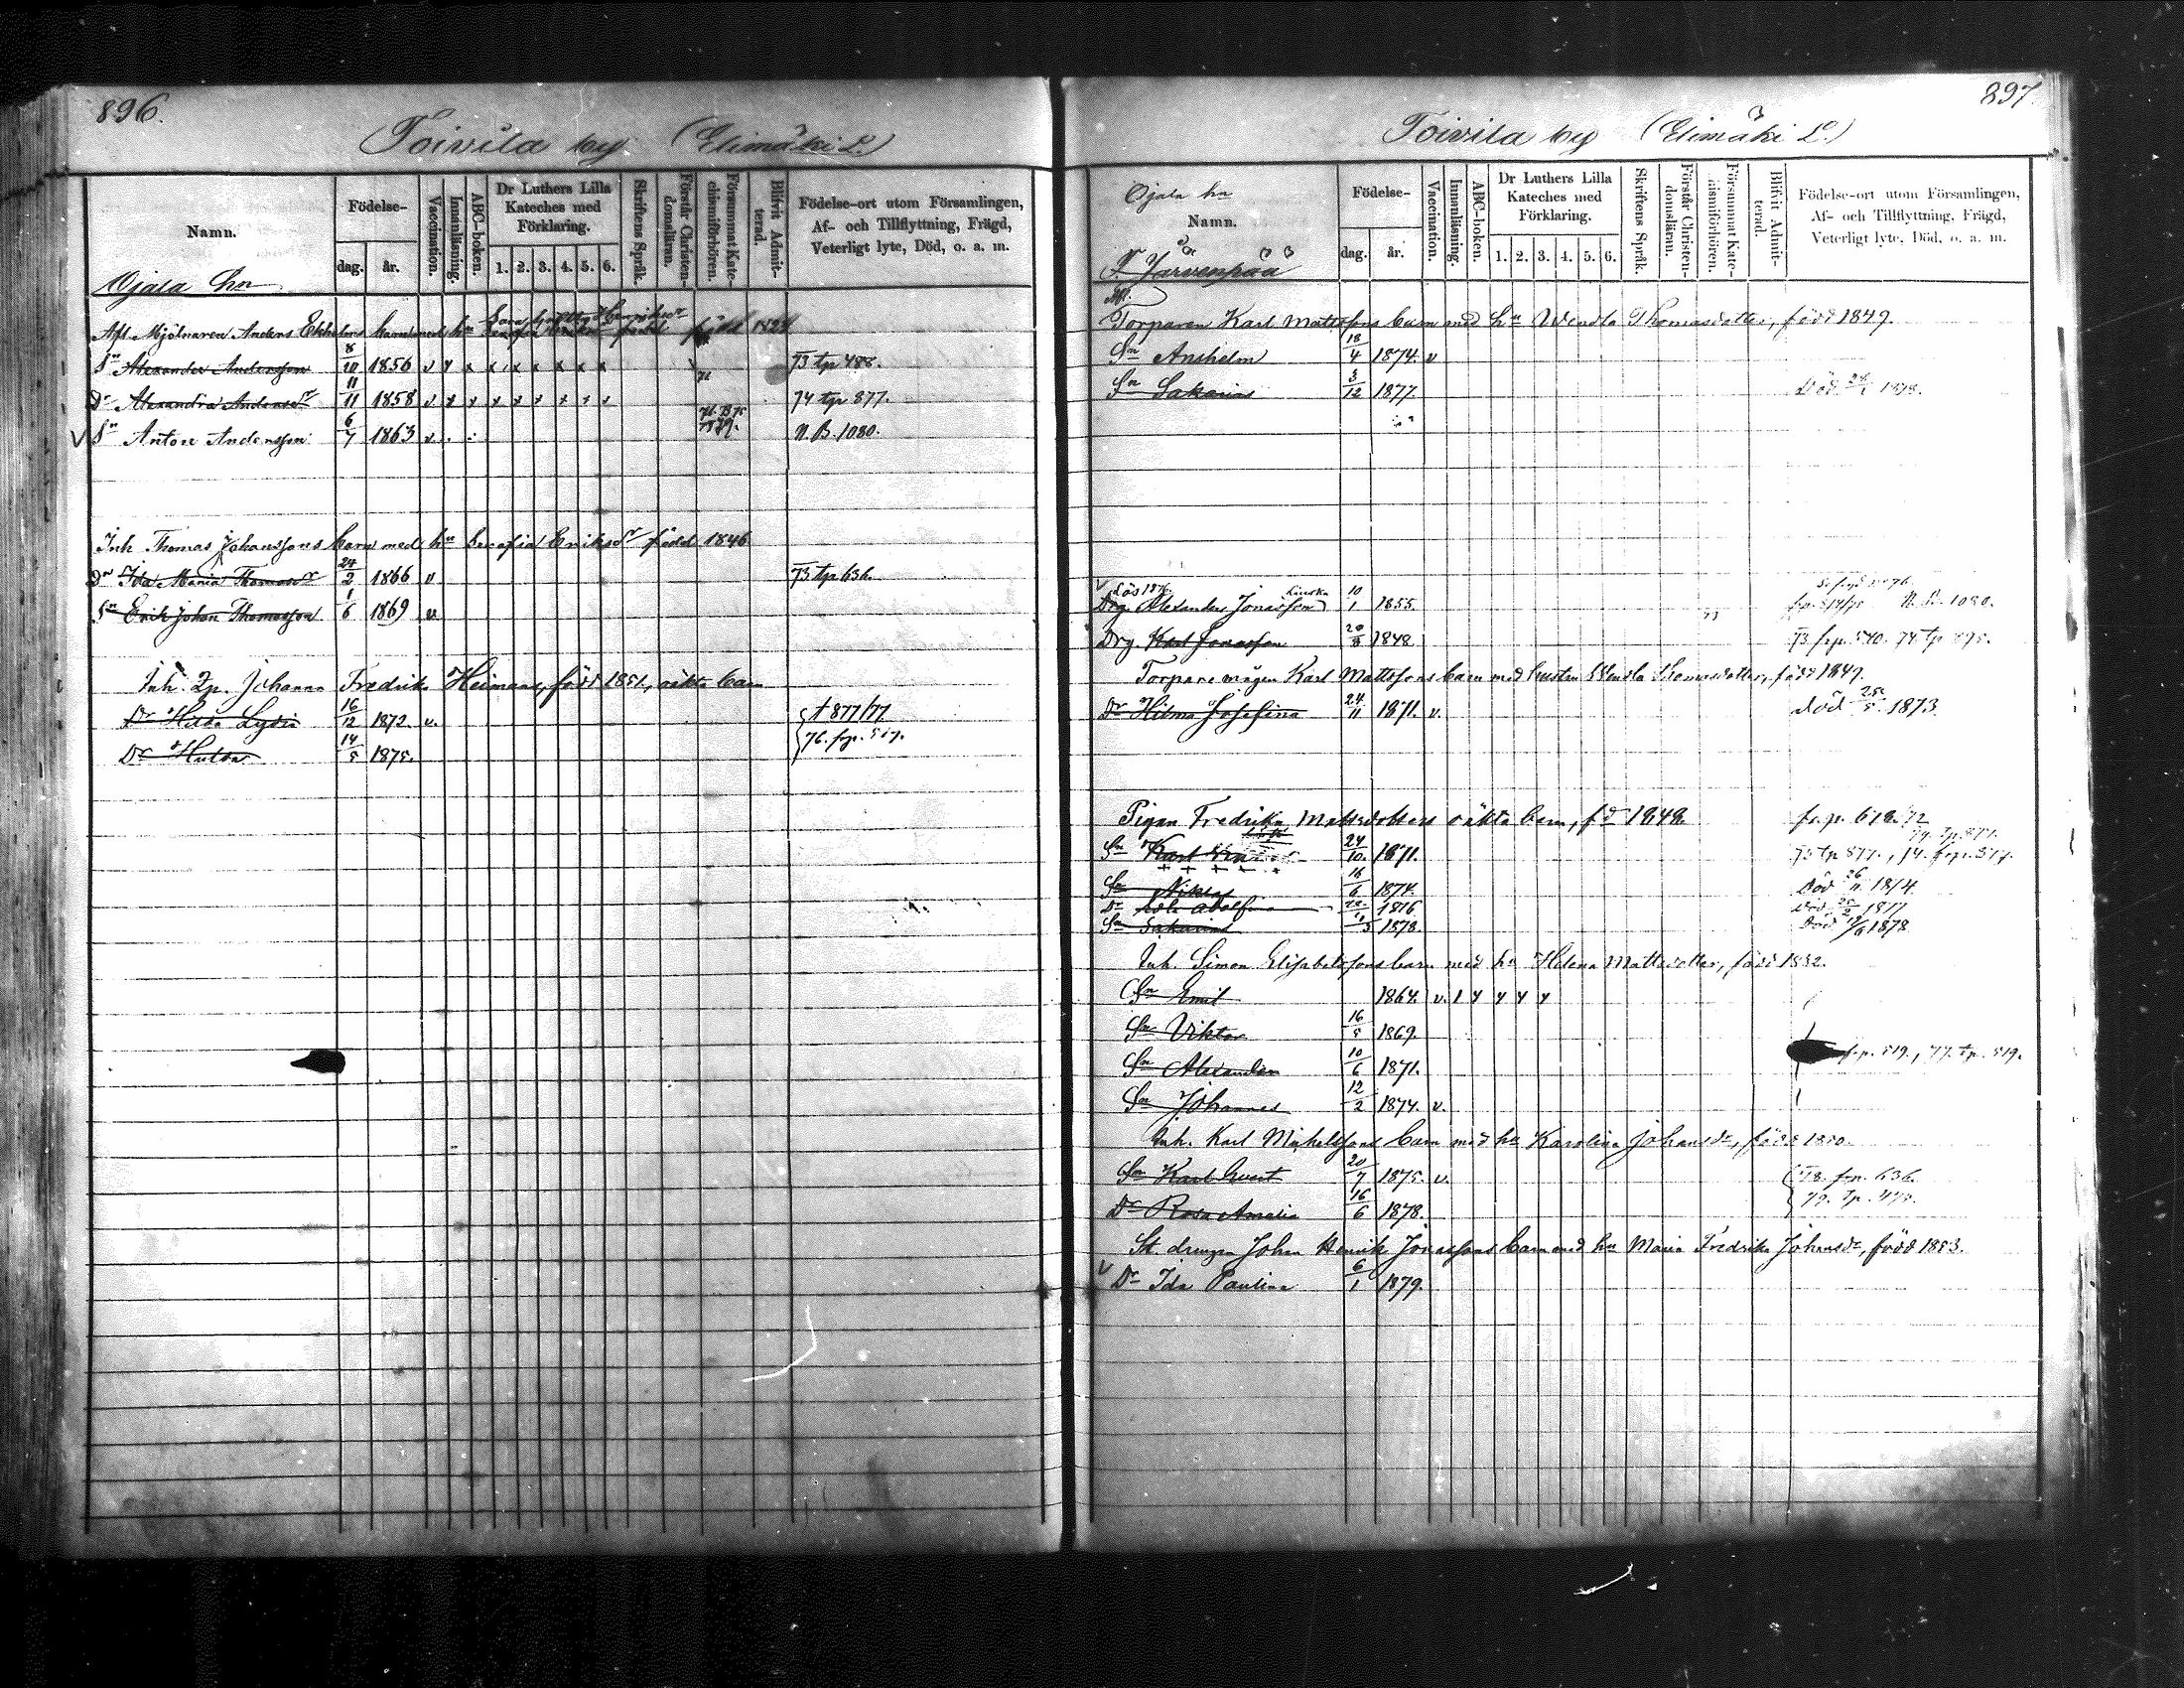 896.
Toivila by (Elimäki L.)
Namn.
Födelse-
dag. år.
Vaccination.
Innanläsning.
ABC-boken.
Dr Luthers Lilla Kateches med Förklaring.
1. 2. 3. 4. 5. 6.
Skriftens Språk.
Förstår Christendomsläran.
Försummat Katechismiförhören.
Blifvit Admitterad.
Födelse-ort utom Församlingen,
Af- och Tillflyttning, Frägd,
Veterligt lyte, Död, o. a. m.
Ojala hn
Afl. Mjölnaren Anders barn med hu född
Sn Alexander Andersson 8/10 1856 v x x x x x x x 73 tp 488.
Dr Alexandra Andersdr 11/11 1858 v x x x x x x x 74 tp 877.
V Sn Anton Andersson 6/7 1863 v. N. B. 1080.
Inh Thomas Johanssons barn med hu Serafia Eriksdr född 1846
Dr Ida Maria Thomasdr 24/2 1866 v 73 tp 636.
Sn Erik Johan Thomasson 1/6 1869 v.
Inh. Qp. Johanna Fredrika Heimans, född 1851, oäkta barn
Dr Hilda Lydia 16/12 1872. v. 877/77
Dr Hulda 14/5 1875. 76. frp. 517.
897.
Toivila by (Elimäki L.)
Ojala hn
Namn.
Födelse-
dag. år.
Vaccination.
Innanläsning.
ABC-boken.
Dr Luthers Lilla Kateches med Förklaring.
1. 2. 3. 4. 5. 6.
Skriftens Språk.
Förstår Christendomsläran.
Försummat Katechismiförhören.
Blifvit Admitterad.
Födelse-ort utom Församlingen,
Af- och Tillflyttning, Frägd,
Veterligt lyte, Död, o. a. m.
Järvenpää
Torparen Karl Mattssons barn med hu Wendla Thomasdotter, född 1849.
Sn Anshelm 18/4 1874. v
Sn Sakarias 3/12 1877. Död 1878.
V Drg. Alexander Jonasson 10/1 1855. N. B. 1080.
Drg. Karl Jonasson 20/8 1848 73 frp. 540. 74 tp 895.
Torpare mågen Karl Mattssons barn med hustru Wendla Thomasdotter, född 1849.
Dr Hilma Josefina 24/11 1871. v. död 25/5 1873.
Pigan Fredrika Mattsdotters oäkta barn, fd 1848. fr. p. 618. 72
Sn Karl 24/10. 1871. 73 tp 877., 74. frp. 517.
Sn Niklas 16/6 1874. Död 26/11 1874.
Dr Adolfina 1876 Död 1877
Sn Sakarias 1878 Död 1878
Inh. Simon Elisabetssons barn med hu Helena Mattsdotter, född 1832.
Sn Emil 1864. v.
Sn Viktor 16/5 1869.
Sn Alexander 10/6 1871. frp. 519., 77. tp. 519.
Sn Johannes 12/2 1874. v.
Inh. Karl Mickelssons barn med hu Karolina Johansdr, född 1850.
Sn Karl Evert 20/7 1875. v. 78. frp. 636.
Dr Rosa Amalia 16/6 1878. 79. tp. 475.
St. drengen Johan Henrik Jonassons barn med hu Maria Fredrika Johansdr, född 1853.
V Dr Ida Paulina 6/1 1879.